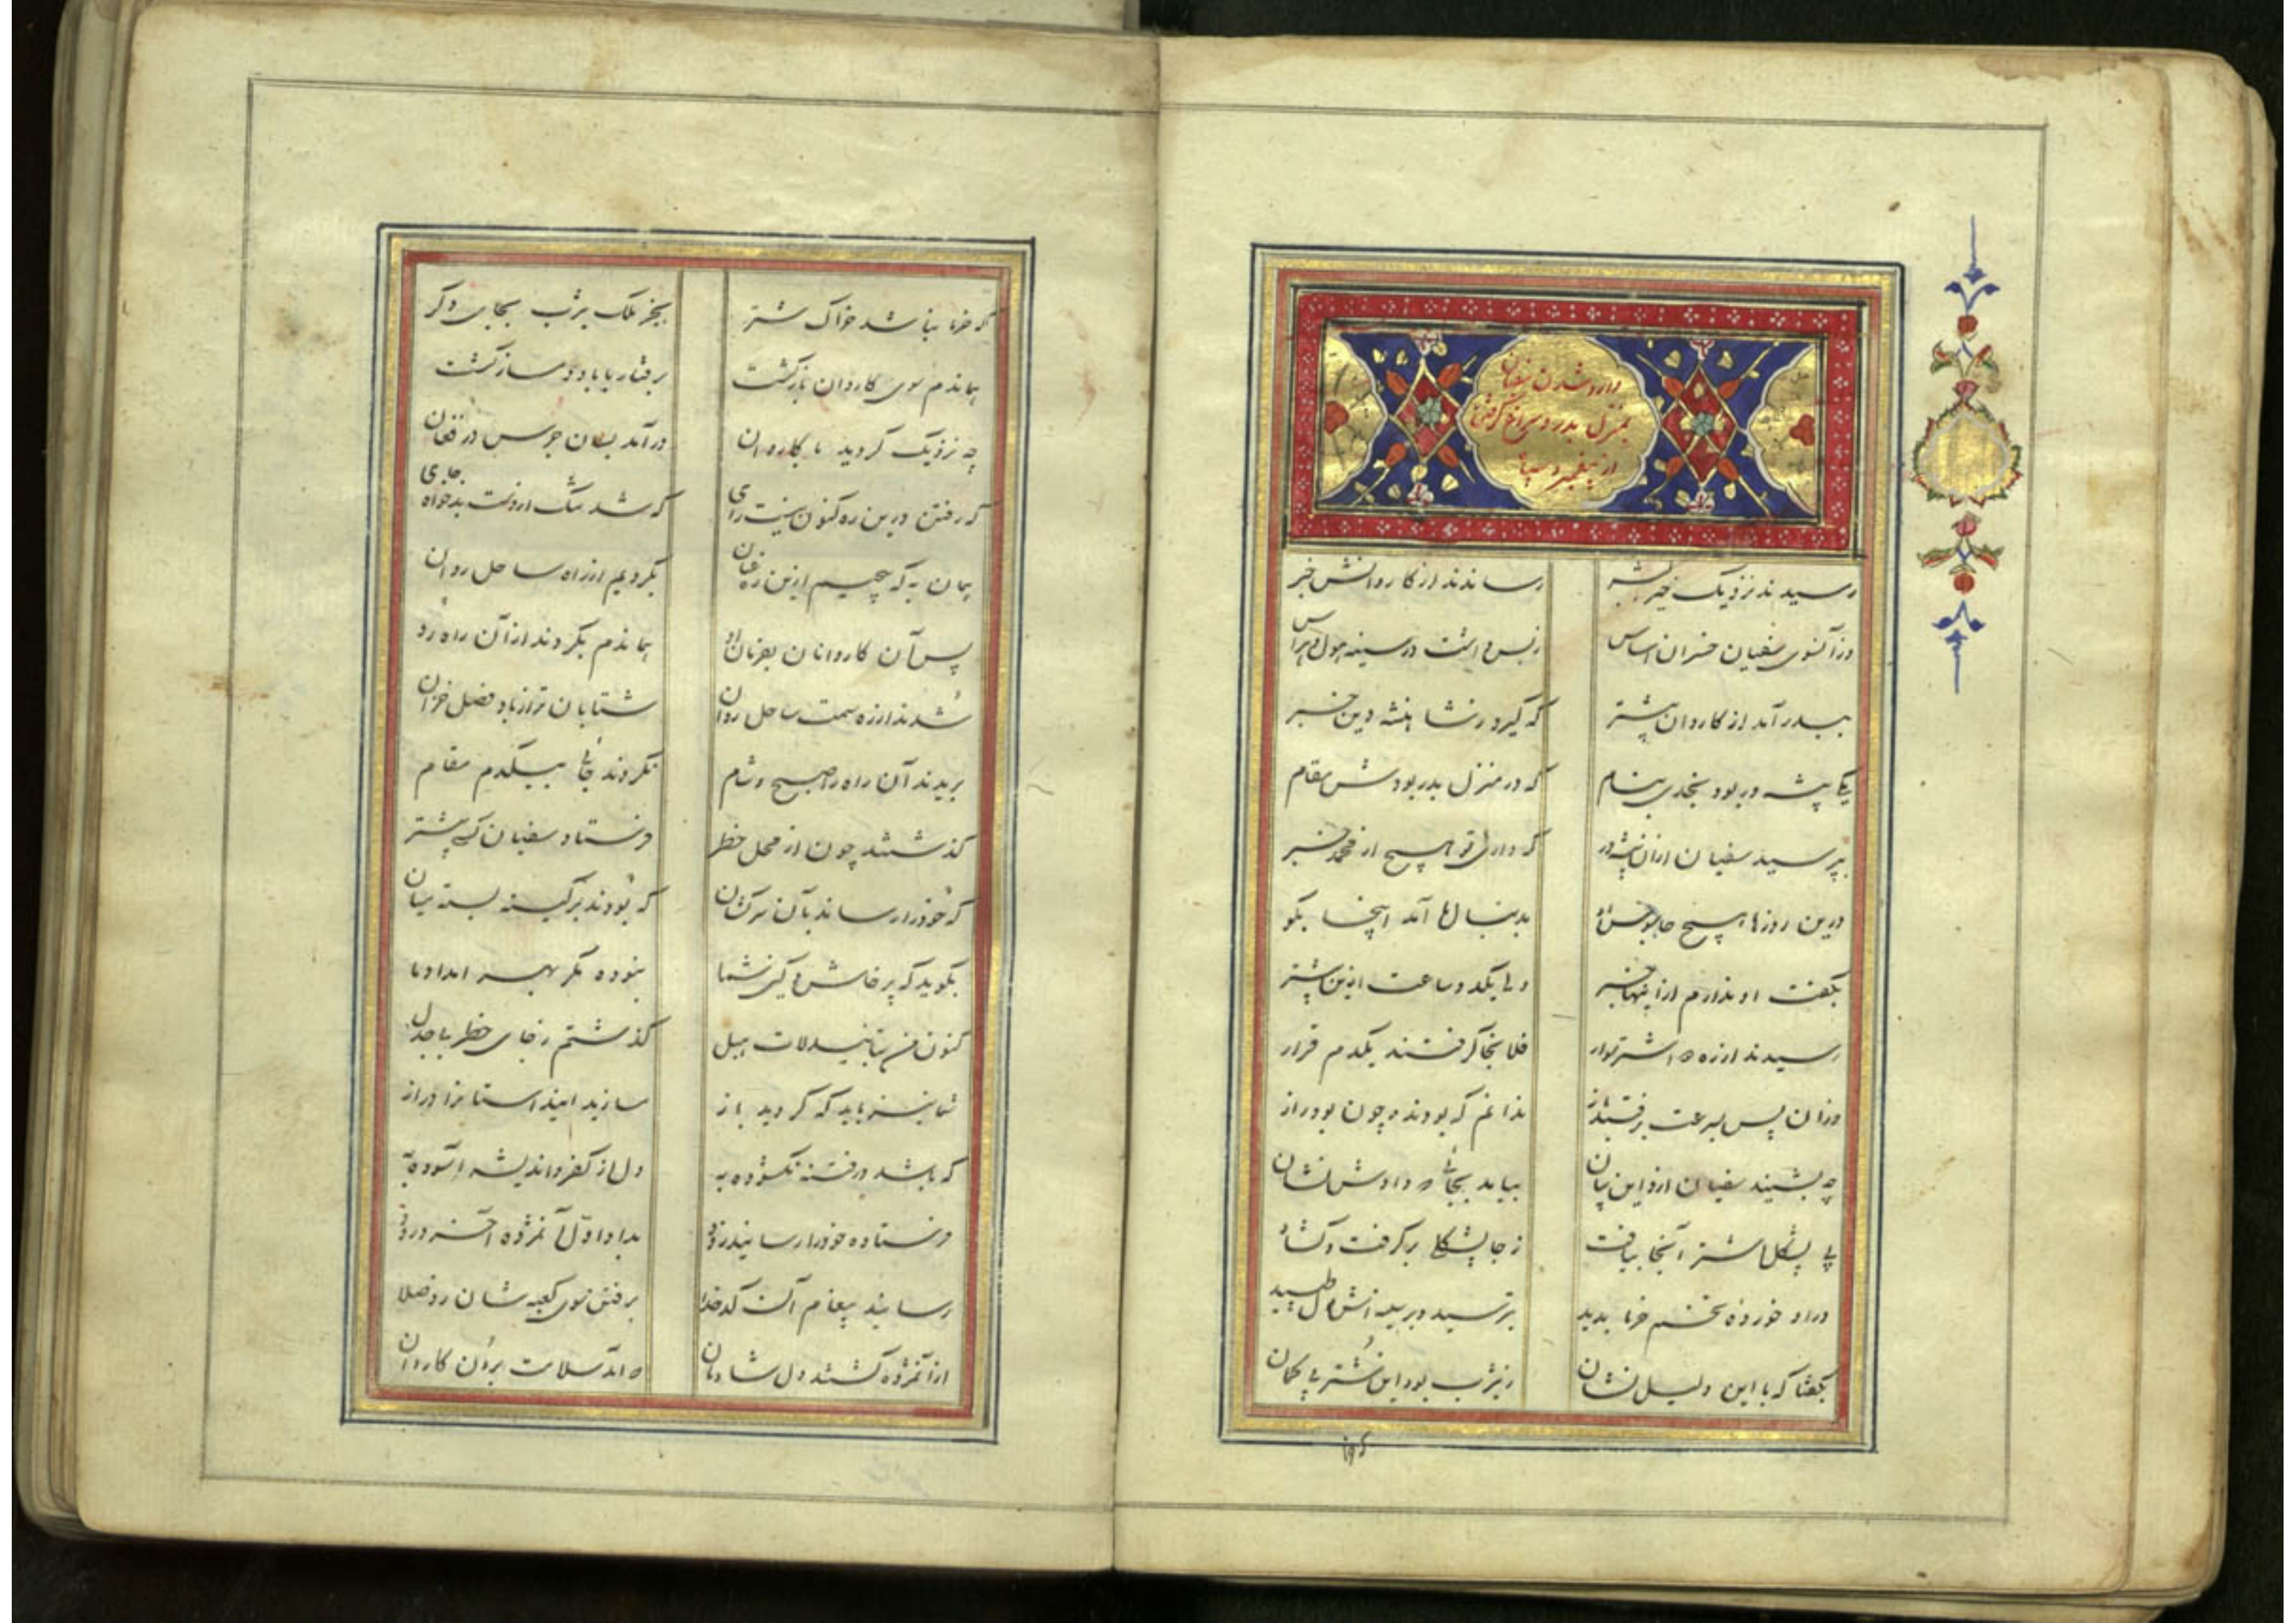 وارد شدن سفیان
بمنزل بدر و سراغ گرفتن
از پیغمبر و سپاه
رسیدند نزدیک خیر البشر رساندند از کاروانش خبر
وز آنسوی سفیان خسران اساس ز بس داشت در سینه هول و هراس
ببدر آمد از کاروان پیشتر که گیرد ز شاهنشه دین خبر
یکی پیشه ور بود مجدی بنام که در منزل بدر بودش مقام
بپرسید سفیان از آن پیشه ور که داری تو هیچ از محمد خبر
درین روزها هیچ جاسوس او بدینسان‌ها آمد اینجا بگو
بگفت او ندارم از اینها خبر ولی یکدو ساعت ازین پیشتر
رسیدند از ره دو اشتر سوار فلانجا گرفتند یکدم قرار
وزان پس بسرعت برفتند باز ندانم که بودند و چون بود راز
چه بشنید سفیان ازو این بیان بیامد بجائی که دادش نشان
پی پشکل اشتر آنجا بیافت ز جا پشکلی برگرفت و شکافت
در او خورده تخم خرما بدید بترسید و بر سینه‌اش دل طپید
بگفتا که با این دلیل نشان ز یثرب بود این شتر بی گمان
۱۹۵
که خرما نباشد خوراک شتر بجز ملک یثرب بجای دگر
هماندم سوی کاروان بازگشت برفتار با باد دمساز گشت
چه نزدیک گردید با کاروان درآمد بسان جرس در فغان
که رفتن درین ره کنون نیست رای که شد سگ از دست بدخواه جای
همان به که پیچیم ازین ره عنان بگردیم از راه ساحل روان
پس آن کاروانان بفرمان او هماندم بگردند از آن راه رو
شدند از ره سمت ساحل روان شتابان تر از باد فصل خزان
بریدند آن راه را صبح و شام نکردند جائی بیکدم مقام
گذشتند چون از محل خطر فرستاد سفیان کسی پیشتر
که خود را رساند بآن سرکشان که بودند بر کینه بسته میان
بگوید که پرخاش و کین شما نبوده مگر بهر امداد ما
کنون من بتأیید لات و هبل گذشتم ز جای خطر با جدل
شما نیز باید که گردید باز مسازید این داستان را دراز
که باشد در فتنه نگشوده به دل از کفر و اندیشه آسوده به
فرستاده خود را رسانید زود بداد اول آن مژده آخر درود
رسانید پیغام آن کدخدا برفتن سوی کعبه‌شان زد صلا
از آن مژده گشتند دل شادمان که آمد سلامت برون کاروان